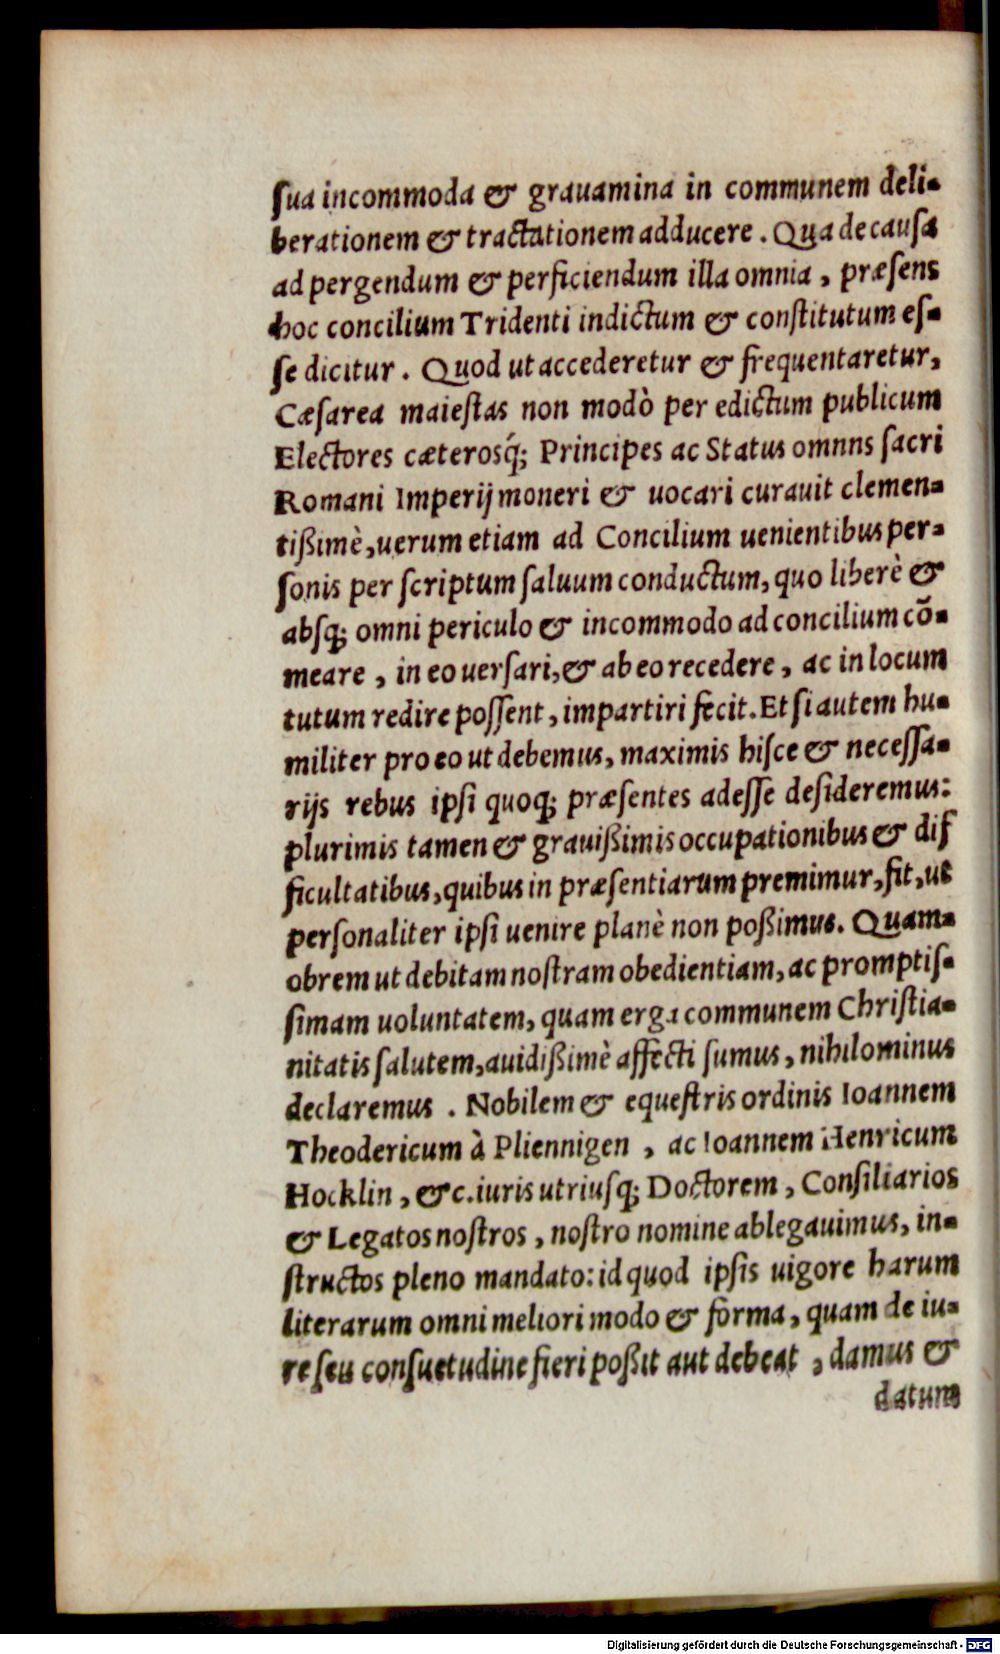 ſua incommoda & grauamina in communem deli-
berationem & tractationem adducere. Qua de cauſa
ad pergendum & perficiendum illa omnia, præſens
hoc concilium Tridenti indictum & conſtitutum eſ-
ſe dicitur. Quod ut accederetur & frequentaretur,
Cæſarea maieſtas non modò per edictum publicum
Electores cæterosq́; Principes ac Status omnns ſacri
Romani Imperij moneri & uocari curauit clemen-
tißimè, uerum etiam ad Concilium uenientibus per-
ſonis per ſcriptum ſaluum conductum, quo liberè &
abſq; omni periculo & incommodo ad concilium cõ-
meare, in eo uerſari, & ab eo recedere, ac in locum
tutum redire poſſent, impartiri fecit. Et ſi autem hu-
militer pro eo ut debemus, maximis hiſce & neceſſa-
rijs rebus ipſi quoq; præſentes adeſſe deſideremus:
plurimis tamen & grauißimis occupationibus & dif
ficultatibus, quibus in præſentiarum premimur, fit, ut
perſonaliter ipſi uenire planè non poßimus. Quam-
obrem ut debitam noſtram obedientiam, ac promptiſ-
ſimam uoluntatem, quam erga communem Chriſtia-
nitatis ſalutem, auidißimè affecti ſumus, nihilominus
declaremus. Nobilem & equeſtris ordinis Ioannem
Theodericum à Pliennigen, ac Ioannem Henricum
Hocklin, &c. iuris utriuſq; Doctorem, Conſiliarios
& Legatos noſtros, noſtro nomine ablegauimus, in-
ſtructos pleno mandato: id quod ipſis uigore harum
literarum omni meliori modo & forma, quam de iu-
re ſeu conſuetudine fieri poßit aut debeat, damus &
datum
Digitalisierung gefördert durch die Deutsche Forschungsgemeinschaft - DFG